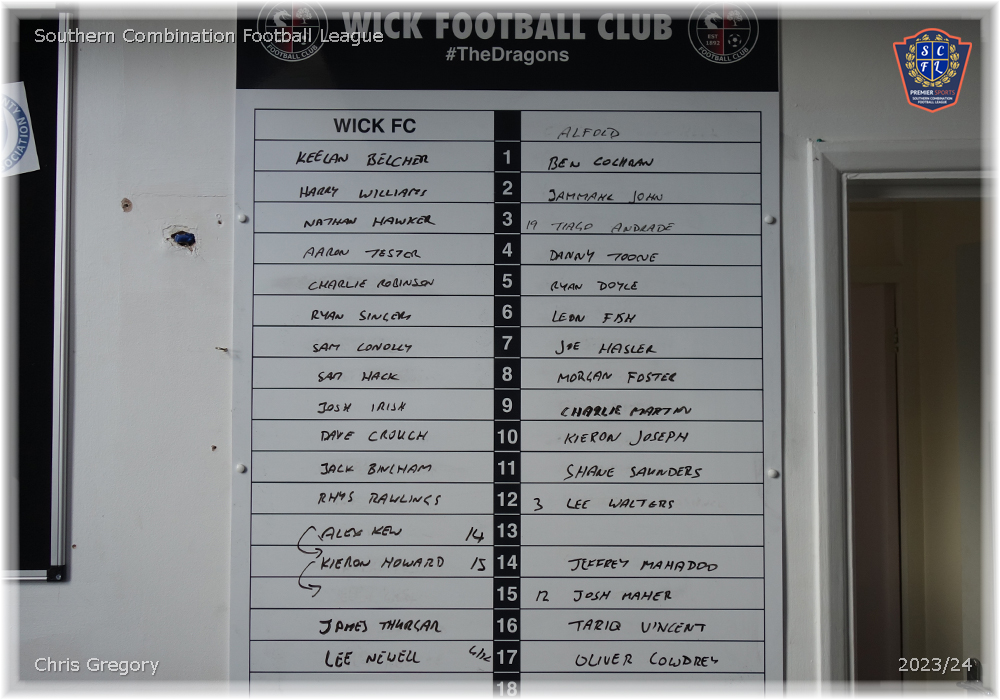 Southern Combination Football League
WICK FOOTBALL CLUB
#TheDragons
FOOTBALL CLUB
EST 1892
FOOTBALL CLUB
S C F L
PREMIER SPORTS
SOUTHERN COMBINATION
FOOTBALL LEAGUE
WICK FC ALFOLD
KEELAN BELCHER 1 BEN COCHRAN
HARRY WILLIAMS 2 JAMMAHL JOHN
NATHAN HAWKER 3 19 TIAGO ANDRADE
AARON TESTER 4 DANNY TOONE
CHARLIE ROBINSON 5 RYAN DOYLE
RYAN SINGERS 6 LEON FISH
SAM CONOLLY 7 JOE HASLER
SAM HACK 8 MORGAN FOSTER
JOSH IRISH 9 CHARLIE MARTIN
DAVE CROUCH 10 KIERON JOSEPH
JACK BINGHAM 11 SHANE SAUNDERS
RHYS RAWLINGS 12 3 LEE WALTERS
ALEX KEW 14 13
KIERON HOWARD 15 14 JEFFREY MAHADDO
15 12 JOSH MAHER
JAMES THURGAR 16 TARIQ VINCENT
LEE NEWELL 17 OLIVER COWDREY
18
Chris Gregory
2023/24